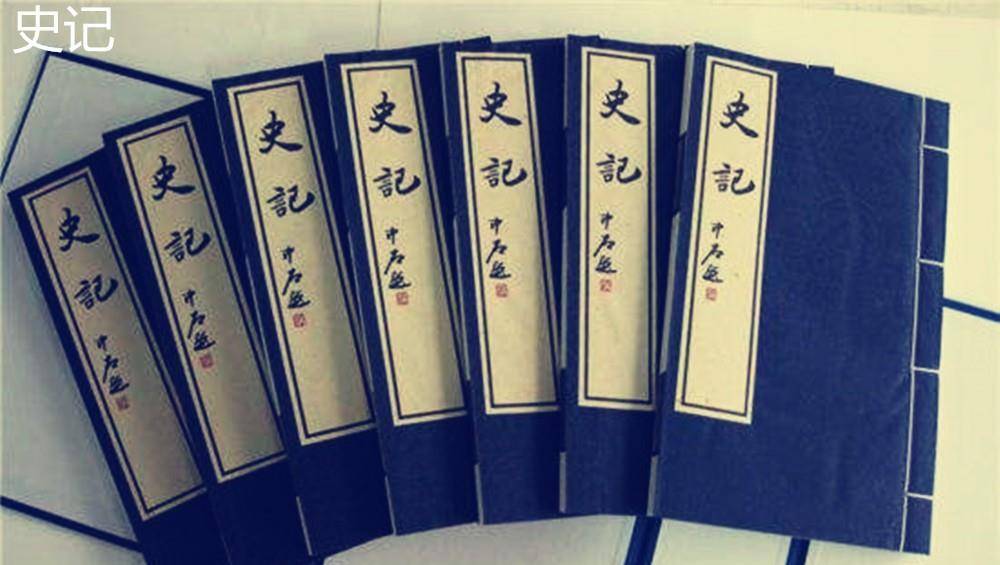 史记
史記
中石題
史記
中石題
史記
中石題
史記
中石題
史記
中石題
史記
中石題
史記
中石題